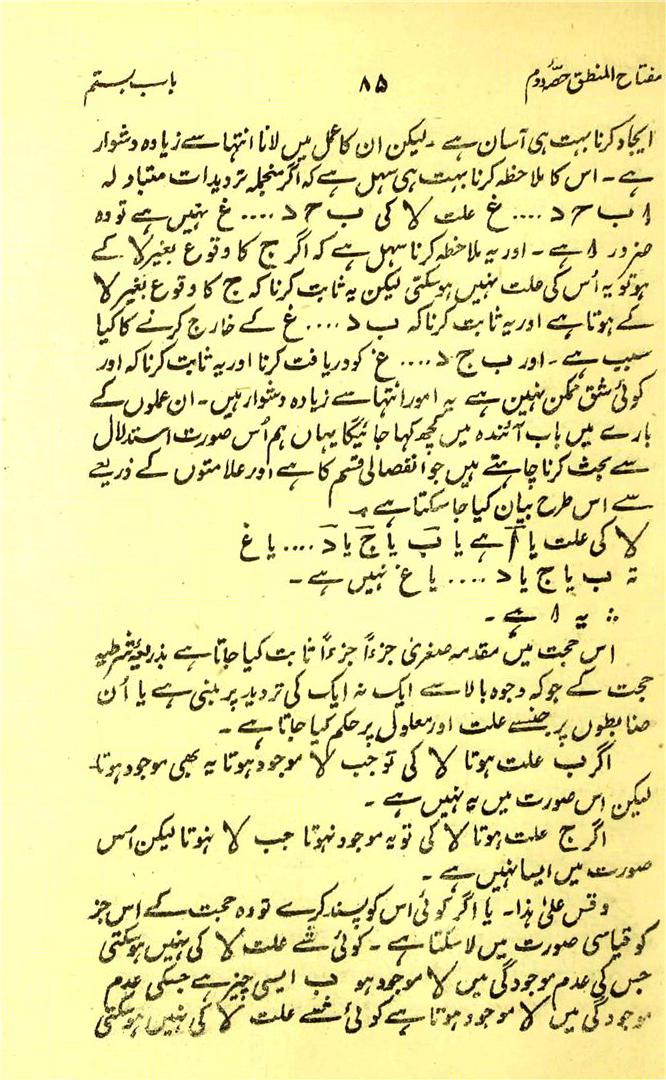 مفتاح المنطق حصۂ دوم ۸۵ باب بستم
ایجاد کرنا بہت ہی آسان ہے ۔ لیکن ان کا عمل میں لانا انتہا سے زیادہ دشوار
ہے ۔ اس کا ملاحظہ کرنا بہت ہی سہل ہے کہ اگر منجملہ تردیدات متبادلہ
ا ب ح د .... غ علت لا کی ب ح د .... غ نہیں ہے تو وہ
ضرور ا ہے ۔ اور یہ ملاحظہ کرنا سہل ہے کہ اگر ج کا وقوع بغیر لا کے
ہو تو یہ اُس کی علت نہیں ہو سکتی لیکن یہ ثابت کرنا کہ ج کا وقوع بغیر لا
کے ہوتا ہے اور یہ ثابت کرنا کہ ب د .... غ کے خارج کرنے کا کیا
سبب ہے ۔ اور ب ج د .... غ کو دریافت کرنا اور یہ ثابت کرنا کہ اور
کوئی شق ممکن نہین ہے یہ امور انتہا سے زیادہ دشوار ہیں ۔ ان عملوں کے
بارے میں باب آئندہ میں کچھ کہا جائیگا یہاں ہم اُس صورت استدلال
سے بحث کرنا چاہتے ہیں جو انفصالی قسم کا ہے اور علامتوں کے ذریعے
سے اس طرح بیان کیا جا سکتا ہے ۔
لا کی علت یا ا ہے یا ب یا ج یا د .... یا غ
نہ ب یا ج یا د .... یا غ نہیں ہے ۔
∴ یہ ا ہے ۔
اس حجت میں مقدمہ صغریٰ جزءاً جزءاً ثابت کیا جاتا ہے بذریعۂ شرطیہ
حجت کے جو کہ وجوہ بالا سے ایک نہ ایک کی تردید پر مبنی ہے یا اُن
ضابطوں پر جنسے علت اور معلول پر حکم کیا جاتا ہے ۔
اگر ب علت ہوتا لا کی تو جب لا موجود ہوتا یہ بھی موجود ہوتا۔
لیکن اس صورت میں یہ نہیں ہے ۔
اگر ج علت ہوتا لا کی تو یہ موجود نہوتا جب لا نہوتا لیکن اُس
صورت میں ایسا نہیں ہے ۔
وقس علیٰ ہذا۔ یا اگر کوئی اس کو پسند کرے تو وہ حجت کے اس جز
کو قیاسی صورت میں لا سکتا ہے ۔ کوئی شے علت لا کی نہیں ہو سکتی
جس کی عدم موجودگی میں لا موجود ہو ب ایسی چیز ہے جسکی عدم
موجودگی میں لا موجود ہوتا ہے کوئی شے علت لا کی نہیں ہو سکتی